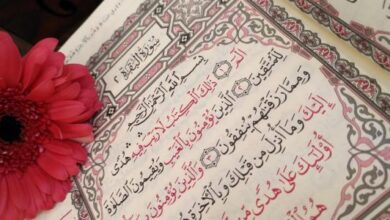 سُورَةُ الْبَقَرَةِ
بِسْمِ اللَّهِ الرَّحْمَٰنِ الرَّحِيمِ
الٓمٓ ١ ذَٰلِكَ الْكِتَٰبُ لَا رَيْبَ فِيهِ هُدًى
لِّلْمُتَّقِينَ ٢ الَّذِينَ يُؤْمِنُونَ بِالْغَيْبِ وَيُقِيمُونَ الصَّلَوٰةَ
وَمِمَّا رَزَقْنَٰهُمْ يُنفِقُونَ ٣ وَالَّذِينَ يُؤْمِنُونَ
إِلَيْكَ وَمَآ أُنزِلَ مِن قَبْلِكَ وَبِالْءَاخِرَةِ
أُوْلَٰٓئِكَ عَلَىٰ هُدًى